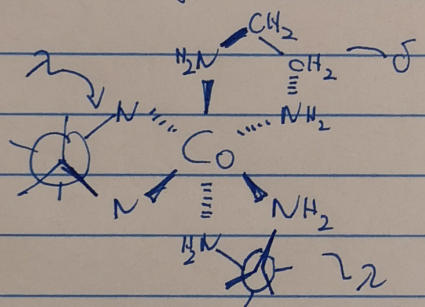 CH₂
H₂N CH₂ — δ
λ N NH₂
Co
N NH₂
H₂N λ